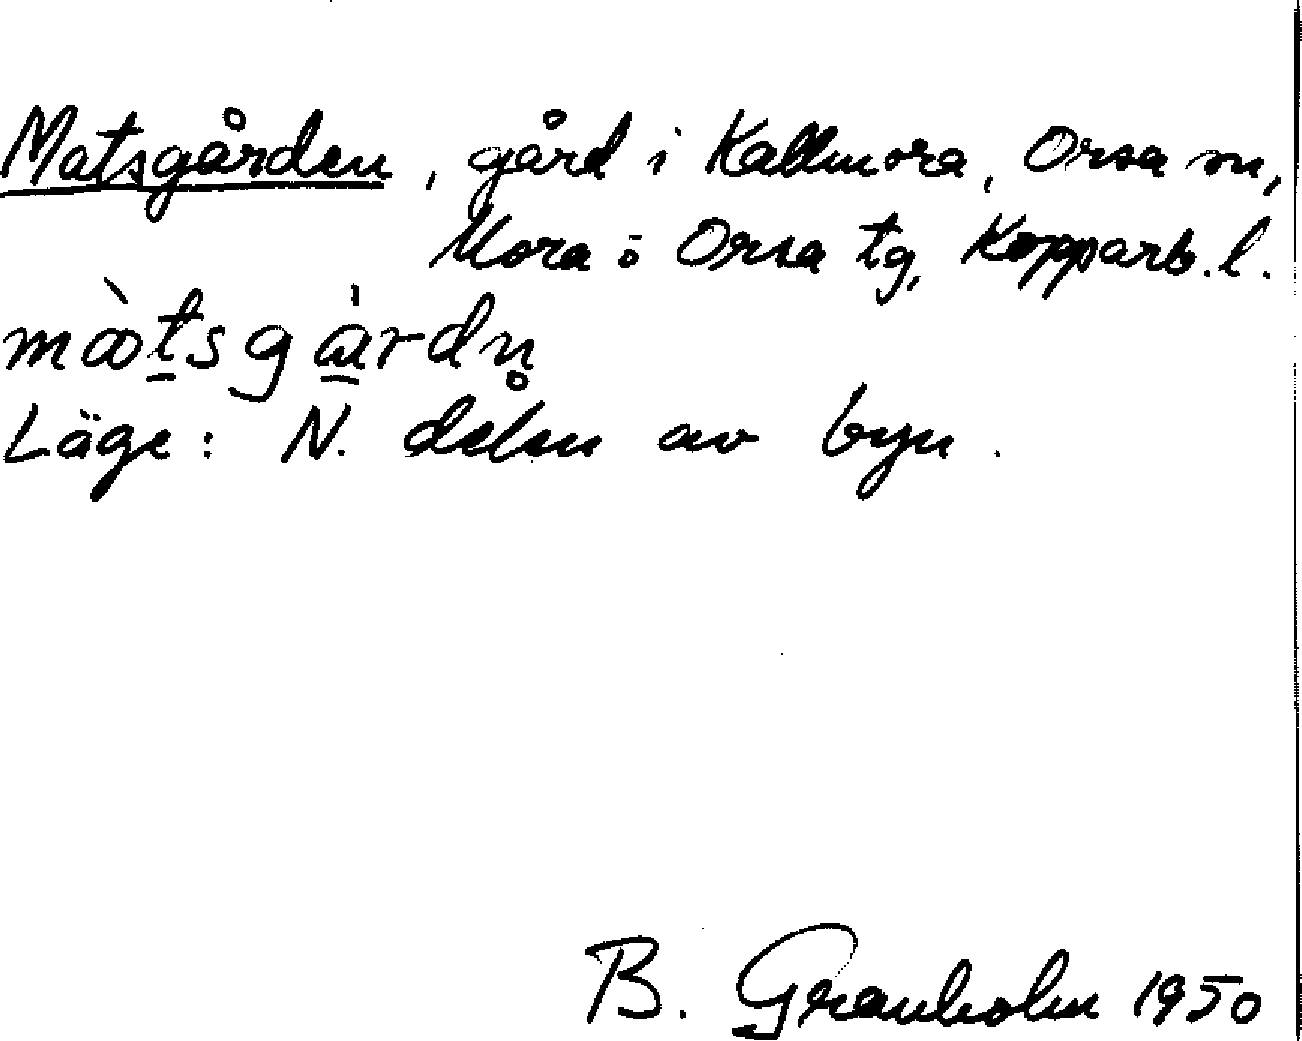 Matsgården, gård i Kallmora, Orsa sn,
Mora o Orsa tg, Kopparb. l.
Läge: N. delen av byn.
B. Granholm 1950